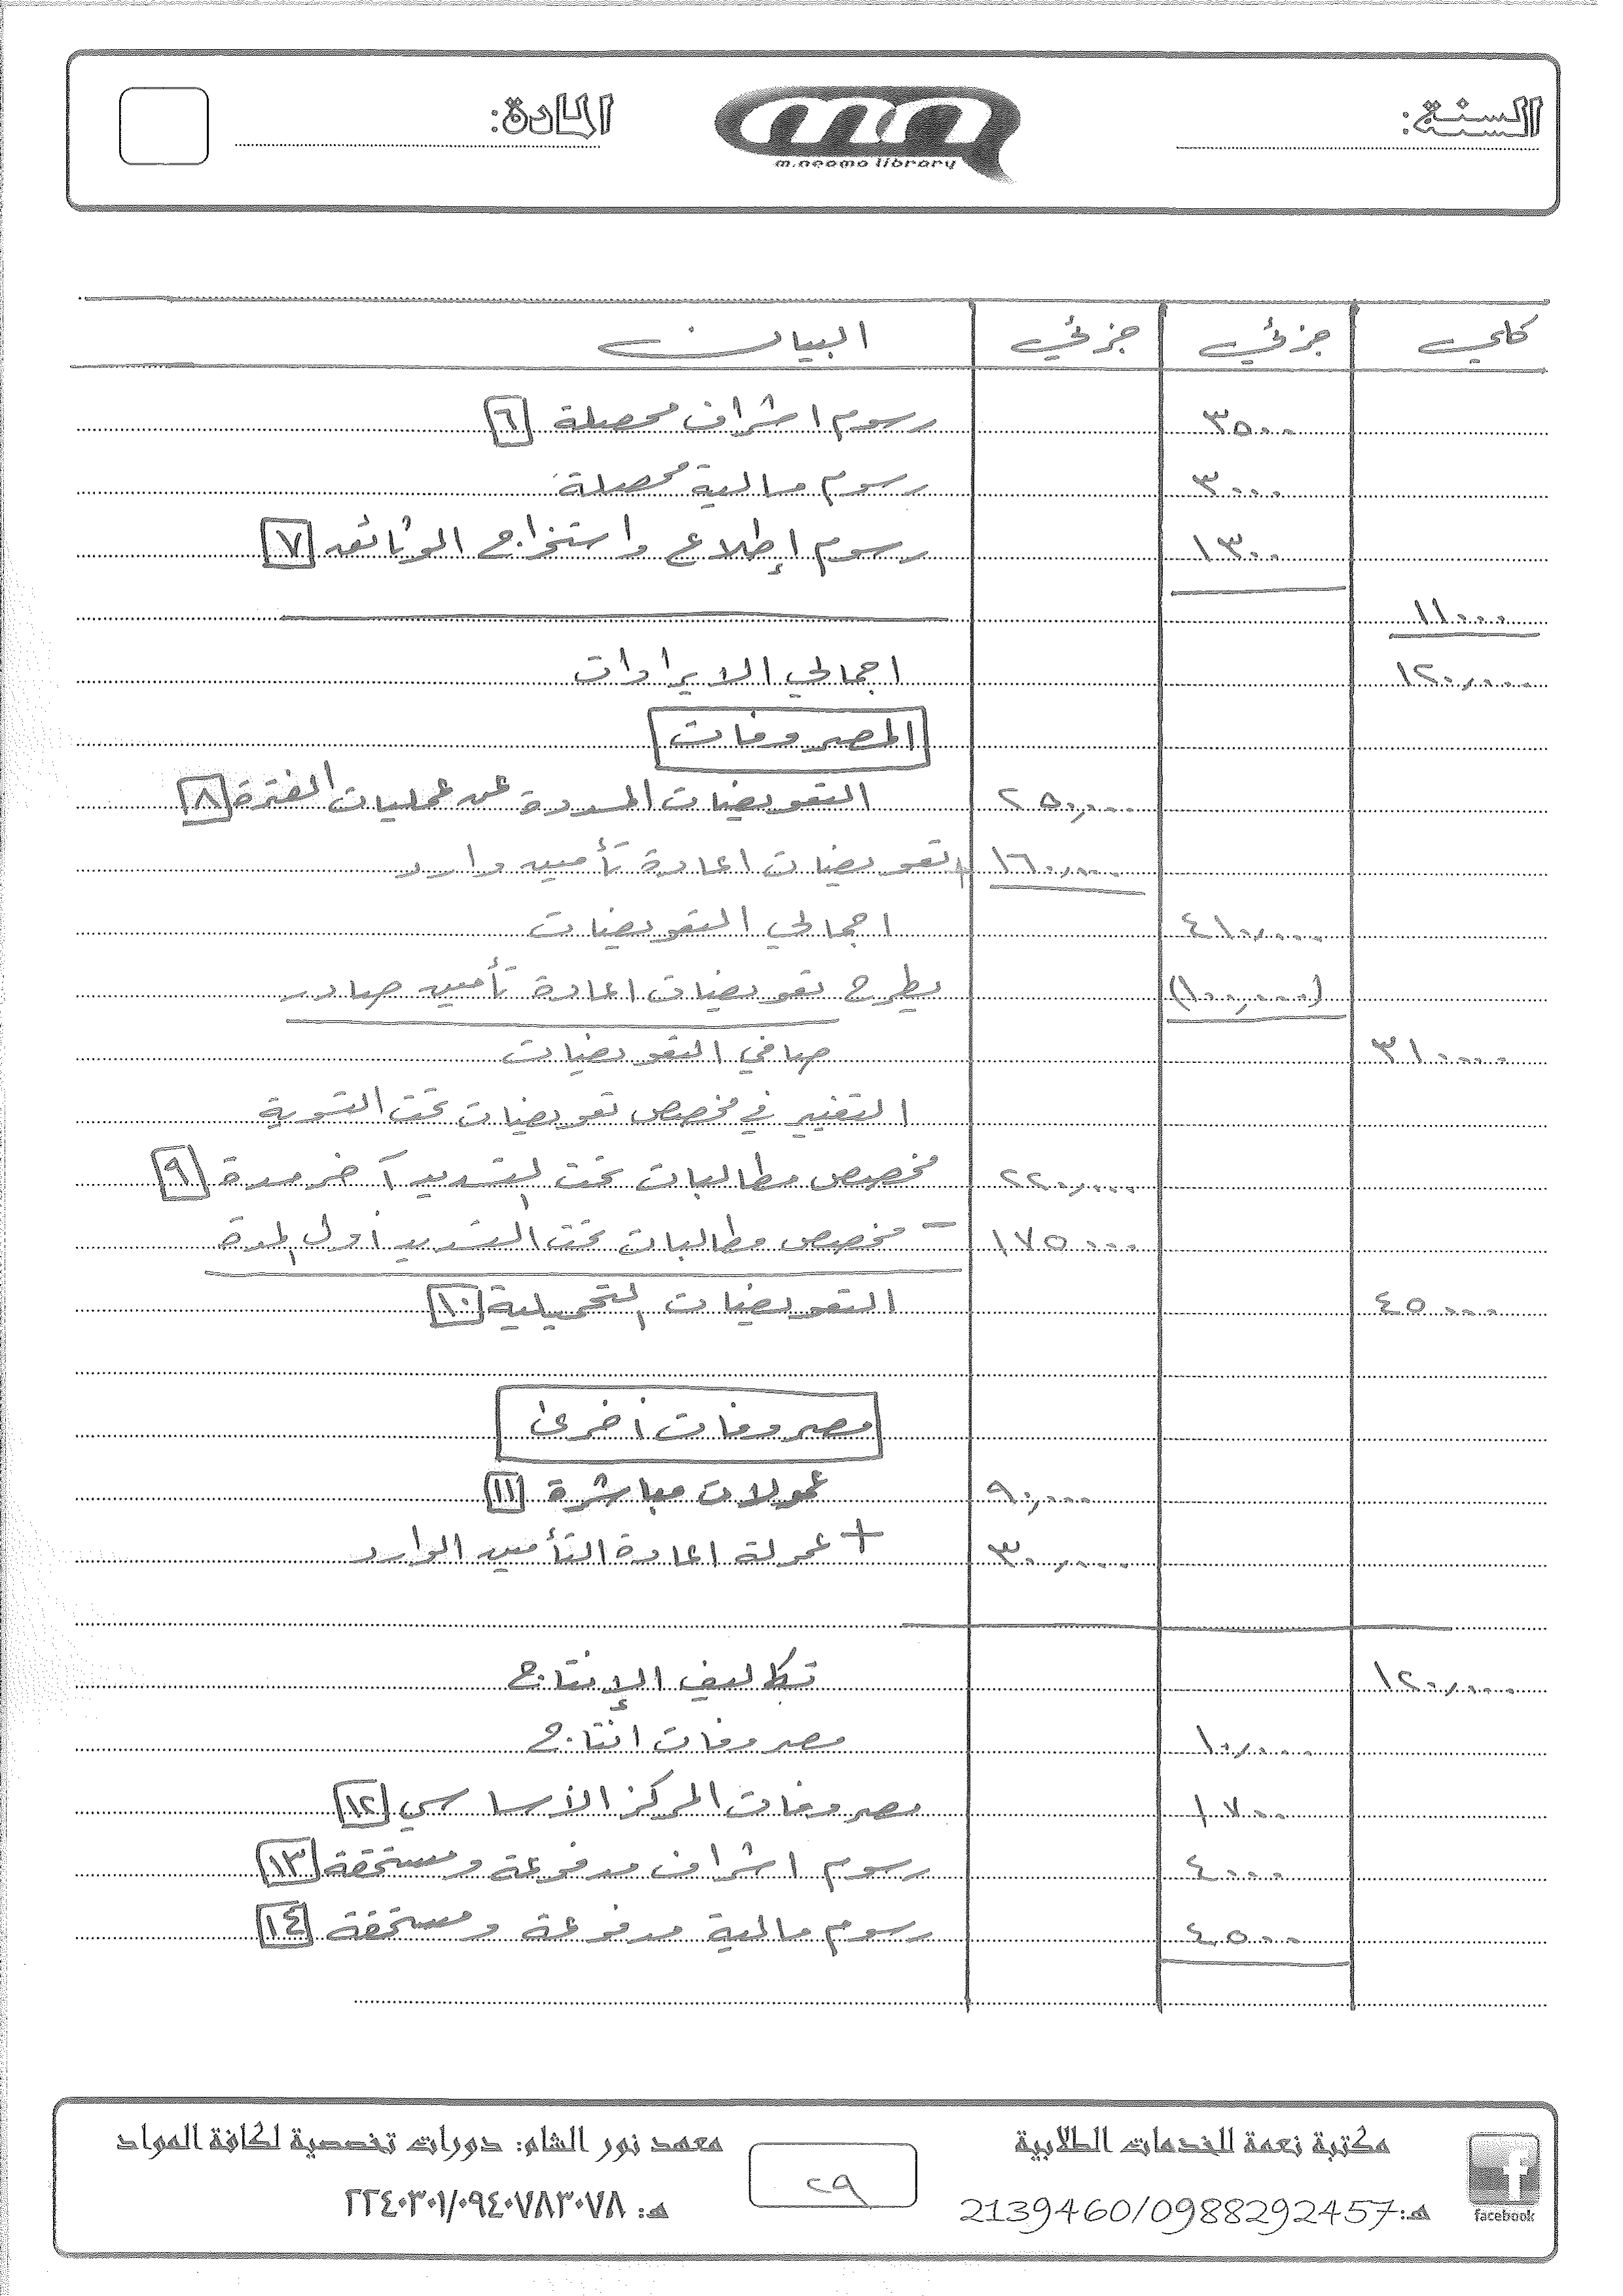 السنة:
m.neama library
المادة:
كلي جزئي جزئي البيان
٣٥٠٠ رسوم اشراف محصلة [٦]
٣٠٠٠ رسوم مالية محصلة
١٣٠٠ رسوم إطلاع واستخراج الوثائق [٧]
١١٠٠٠
١٢٠,٠٠٠ اجمالي الايرادات
المصروفات
٢٥٠,٠٠٠ التعويضات المسددة عن عمليات الفترة [٨]
١٦٠,٠٠٠ + تعويضات اعادة تأمين وارد
٤١٠,٠٠٠ اجمالي التعويضات
(١٠٠,٠٠٠) يطرح تعويضات اعادة تأمين صادر
٣١٠٠٠٠ صافي التعويضات
التغير في مخصص تعويضات تحت التسوية
٢٢٠,٠٠٠ مخصص مطالبات تحت التسديد آخر مدة [٩]
١٧٥٠٠٠ – مخصص مطالبات تحت التسديد أول المدة
٤٥٠٠٠ التعويضات التحميلية [١٠]
مصروفات أخرى
٩٠,٠٠٠ عمولات مباشرة [١١]
٣٠,٠٠٠ + عمولة اعادة التأمين الوارد
١٢٠,٠٠٠ تكاليف الإنتاج
١٠,٠٠٠ مصروفات انتاج
١٧٠٠ مصروفات المركز الأساسي [١٢]
٤٠٠٠ رسوم اشراف مدفوعة ومستحقة [١٣]
٤٥٠٠ رسوم مالية مدفوعة ومستحقة [١٤]
مكتبة نعمة للخدمات الطلابية
هـ:2139460/0988292457
facebook
٢٩
معهد نور الشام: دورات تخصصية لكافة المواد
هـ: ٢٢٤٠٣٠١/٠٩٤٠٧٨٣٠٧٨